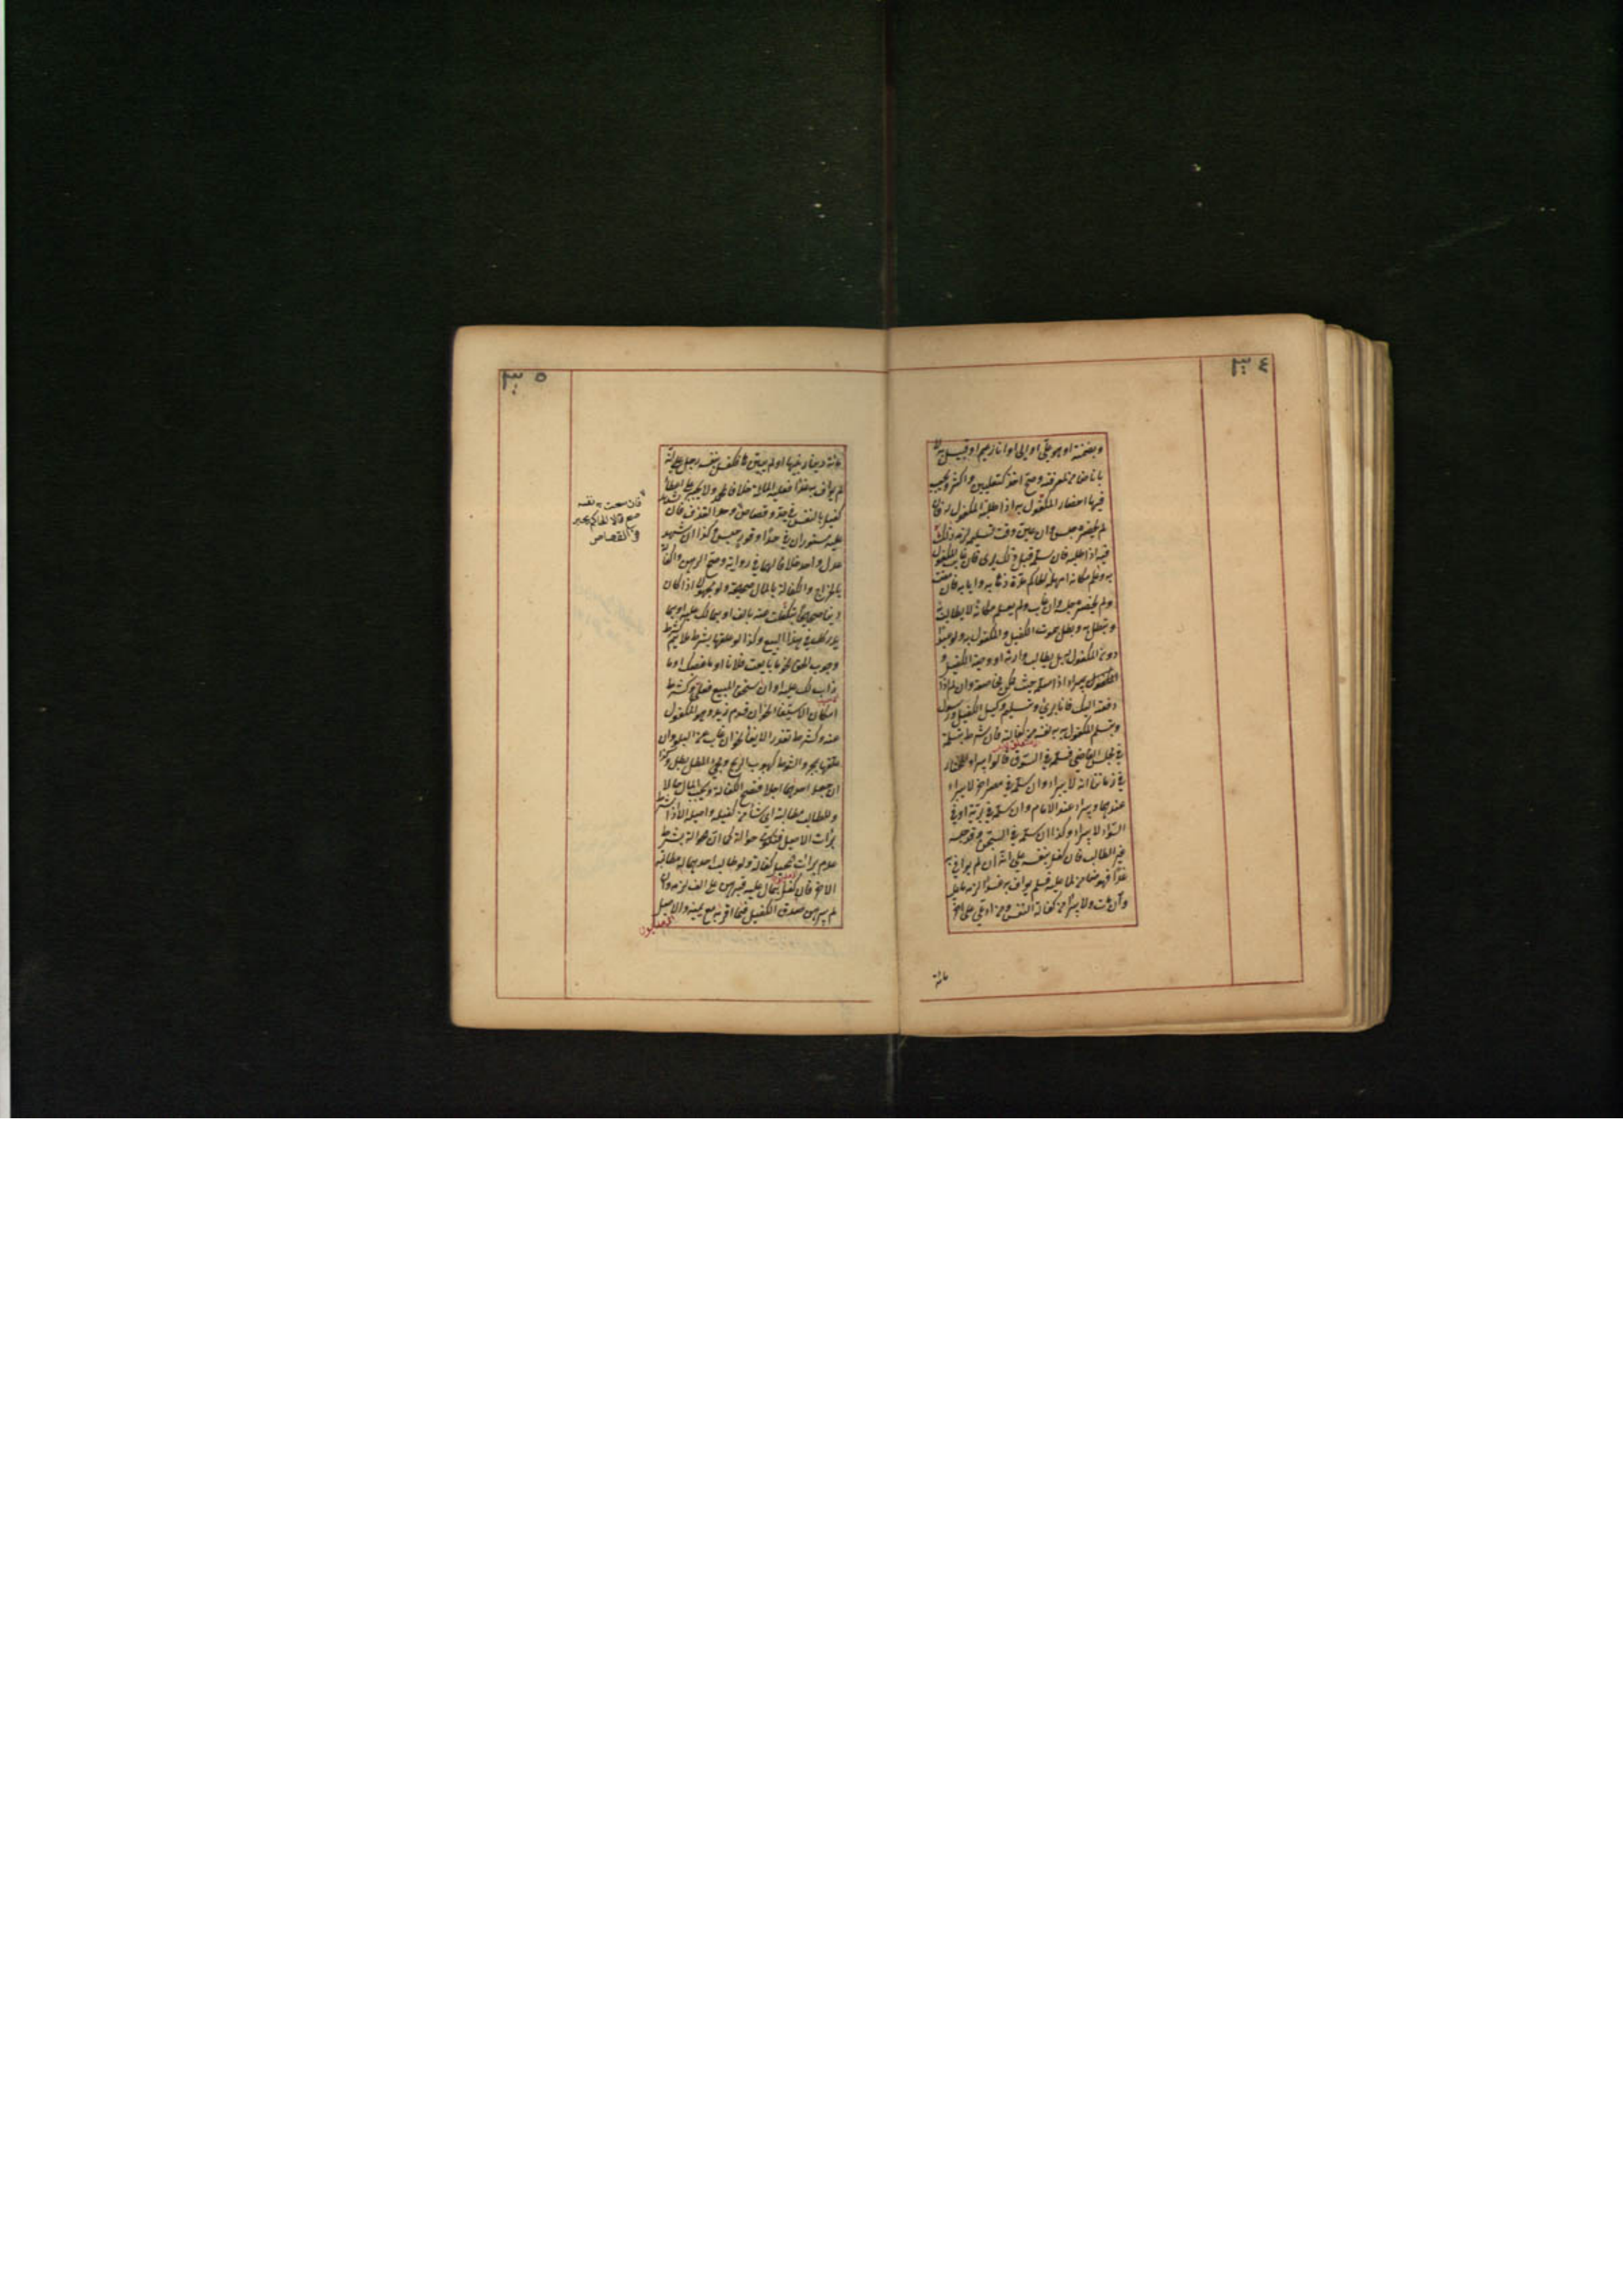 ٣٠٤
وبضمنته او هو علي او الي او انا زعيم او قبيل به لا
بانا ضامن لمعرفته وصح اخذ كفيلين واكثر ويجب
فيها احضار المكفول به اذا طلبه المكفول له فان
لم يحضره حبس وان عين وقت تسليمه لزمه ذلك
فيه اذا طلبه فان سلمه قبل ذلك برئ فان غاب المكفول
به وعلم مكانه امهله الحاكم مدة ذهابه وايابه فان مضت
ولم يحضره حبسه وان غاب ولم يعلم مكانه لا يطالب به
وتبطل بموت الكفيل والمكفول به ولو عبدا
دون المكفول له بل يطالب وارثه او وصيه الكفيل و
يبراء اذا سلمه حيث تمكن مخاصمته وان لم يقل اذا
دفعته اليك فانا برئ وبتسليم وكيل الكفيل ورسوله
وبتسليم المكفول به نفسه من كفالته فان شرط تسليمه
في مجلس القاضي فسلمه في السوق قالوا يبراء والمختار
في زماننا انه لا يبراء وان سلمه في مصر اخر لا يبراء
عندهما ويبراء عند الامام وان سلمه في برية او في
السواد لا يبراء وكذا ان سلمه في السجن وقد حبسه
غير الطالب فان كفل بنفسه على انه ان لم يواف به
غدا فهو ضامن لما عليه فلم يواف به غدا لزمه ما عليه
وان مات ولا يبراء من كفالة النفس ومن ادعى على اخر
مائة
٣٠٥
مائة دينار بينها او لم يبين فكفل بنفسه رجل على انه
لم يواف به غدا فعليه المائة خلافا لمحمد ولا يجبر على اعطاء
كفيل بالنفس في حد وقصاص وحد القذف فان شهد
عليه مستوران في حد او قود حبس وكذا ان شهد
عدل واحد خلافا لهما في رواية وصح الرهن والكفالة
بالخراج والكفالة بالمال صحيحة ولو مجهولا اذا كان
دينا صحيحا بتكفلت عنه بالف او بمالك عليه او بما
يدركك في هذا البيع وكذا لو علقها بشرط ملائم كشرط
وجوب الحق نحو ما بايعت فلانا او ما غصبك او ما
ذاب لك عليه او ان استحق المبيع فعلي وكشرط
امكان الاستيفاء نحو ان قدم زيد وهو المكفول
عنه وكشرط تعذر الايفاء نحو ان غاب عن البلد وان
علقها بمجرد الشرط كهبوب الريح ومجئ المطر بطل وكذا
ان جعل احدهما اجلا فتصح الكفالة ويجب المال حالا
وللطالب مطالبة اي شاء من كفيله واصيله الا اذا شرط
براءت الاصيل فتكون حوالة كما ان الحوالة بشرط
عدم براءت المحيل كفالة ولو طالب احدهما له مطالبة
الاخر فان كفل بمال عليه فبرهن على الف لزمه وان
لم يبرهن صدق الكفيل فيما اقر به مع يمينه والاصيل
فان سمحت به نفسه
صح قالا الحاكم يجبر
في القصاص